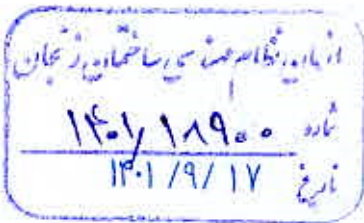 سازمان نظام مهندسی ساختمان زنجان
شماره ۱۴۰۱/۱۸۹۰۰
تاریخ ۱۴۰۱/۹/۱۷